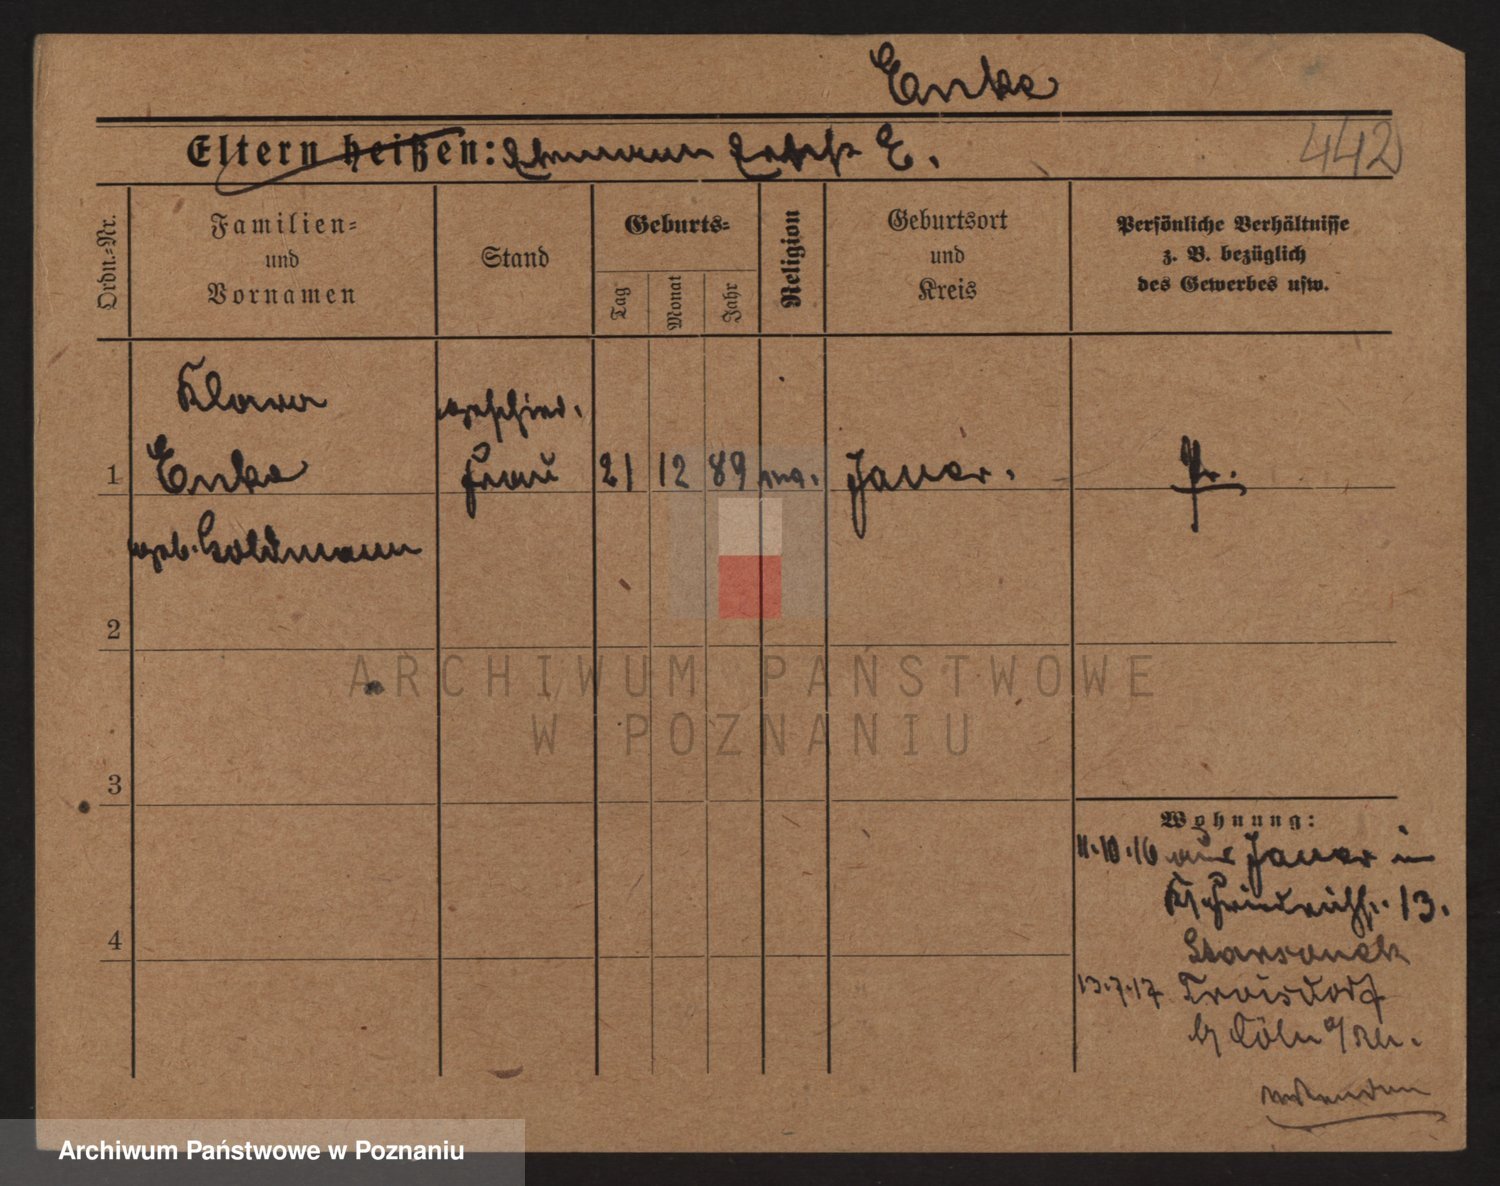 Enke
Eltern heißen: E.
442
Ordn.-Nr.
Familien- und Vornamen
Stand
Geburts-
Tag
Monat
Jahr
Religion
Geburtsort und Kreis
Persönliche Verhältnisse
z. B. bezüglich
des Gewerbes usw.
Klara geschied.
1 Enke Frau 21 12 89 Jauer. Pr.
geb. Goldmann
2
3
4
Wohnung:
11.10.16 aus Jauer in
13.
13.7.17 Troisdorf
b/ Cöln a/Rh.
ARCHIWUM PAŃSTWOWE
W POZNANIU
Archiwum Państwowe w Poznaniu